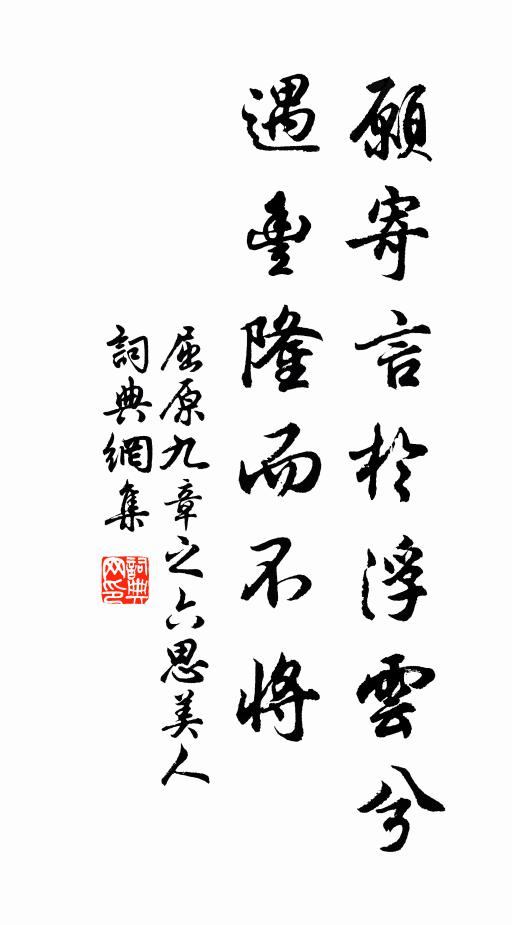 願寄言於浮雲兮
遇豐隆而不將
屈原九章之六思美人
詞典網集
詞典网印